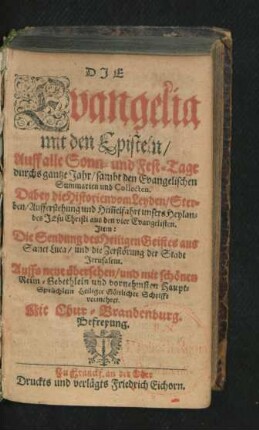 DIE
Evangelia
mit den Episteln/
Auff alle Sonn- und Fest-Tage
durchs gantze Jahr/ sambt den Evangelischen
Summarien und Collecten.
Dabey die Historien vom Leyden/ Ster-
ben/ Aufferstehung und Him̃elfahrt unsers Heylan-
des Jesu Christi aus den vier Evangelisten.
Item:
Die Sendung des Heiligen Geistes aus
Sanct Luca/ und die Zerstörung der Stadt
Jerusalem.
Auffs neue übersehen/ und mit schönen
Reim-Gebethlein und vornehmsten Haupt-
Sprüchlein Heiliger Göttlicher Schrifft
vermehret.
Mit Chur-Brandenburg.
Befreyung.
Zu Franckf. an der Oder
Druckts und verlägts Friedrich Eichorn.